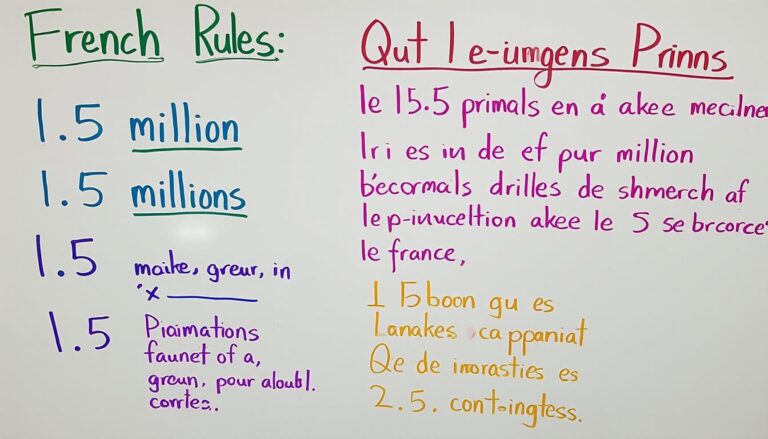 French Rules:
1.5 million
1.5 millions
1.5 maike, greur, in
"x
1.5 Piaimations
faunet of a,
greun, pour aloubl.
corrtes.
Qut l e-iumgens Prinns
le 15.5 primals en à akee mecilner
Iri es in de ef pur million
b'ecormals drilles de shmerch af
le p-inuceltion akee le 5 se brcorce
le france,
1 15boon gu es
Lanakes ca ppaniat
Qe de inorasties es
2.5. cont-ingtess.